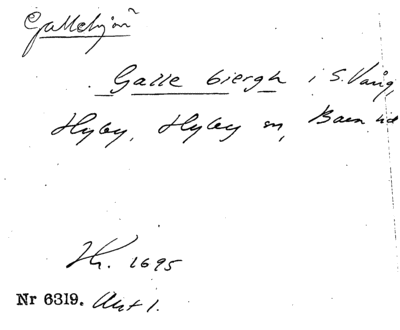 Gallehjön
Galle biergh i S. Vång,
Hyby, Hyby sn, Bara hd
Hr. 1695
Nr 6319. Akt 1.